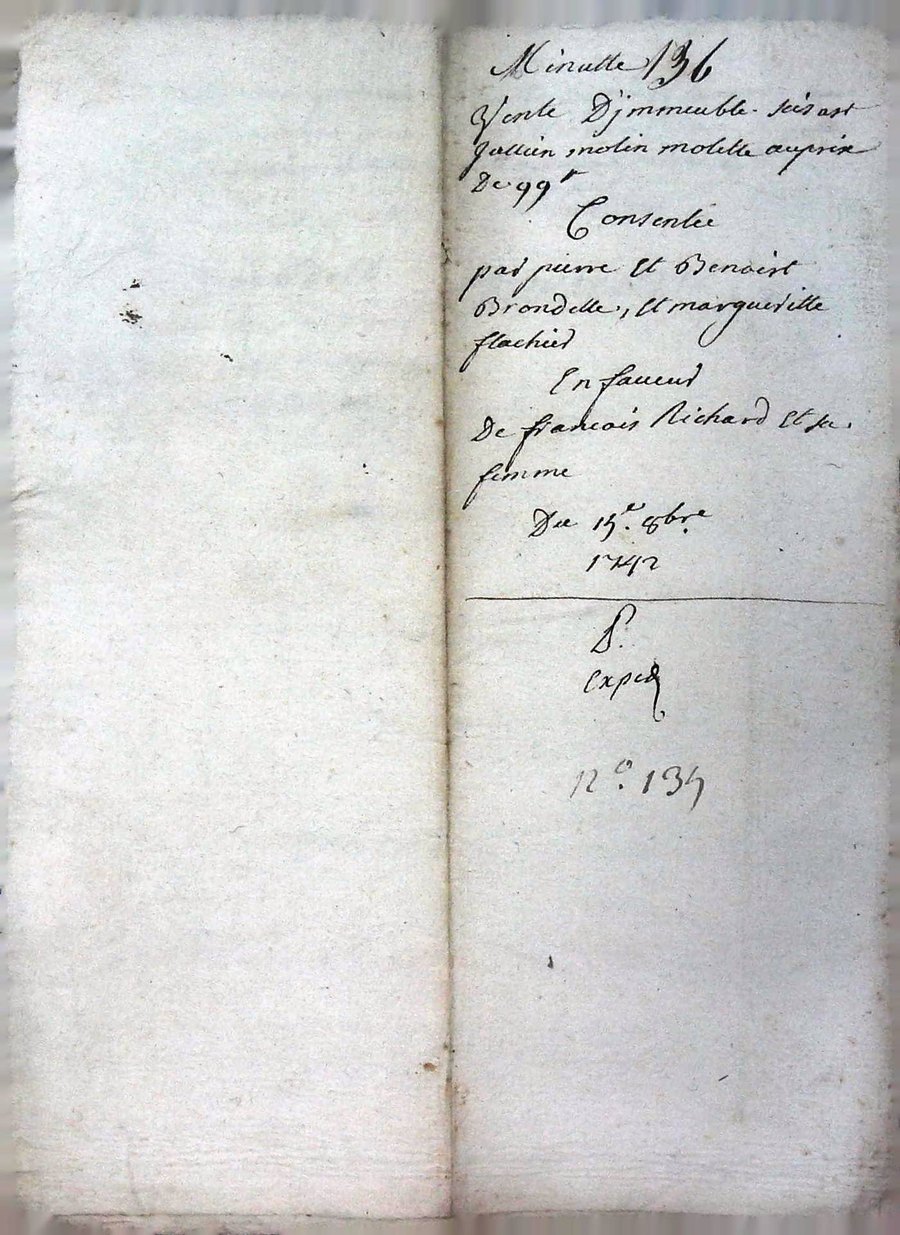 Minutte 136
Vente D'jmmeuble scis a st
Jullien molin molette au prix
De 99#
Consentie
par pierre Et Benoist
Brondelle, Et margueritte
flachier
En faveur
De francois Richard Et sa
femme
Du 15e. 8bre
1742
Exped
no. 135